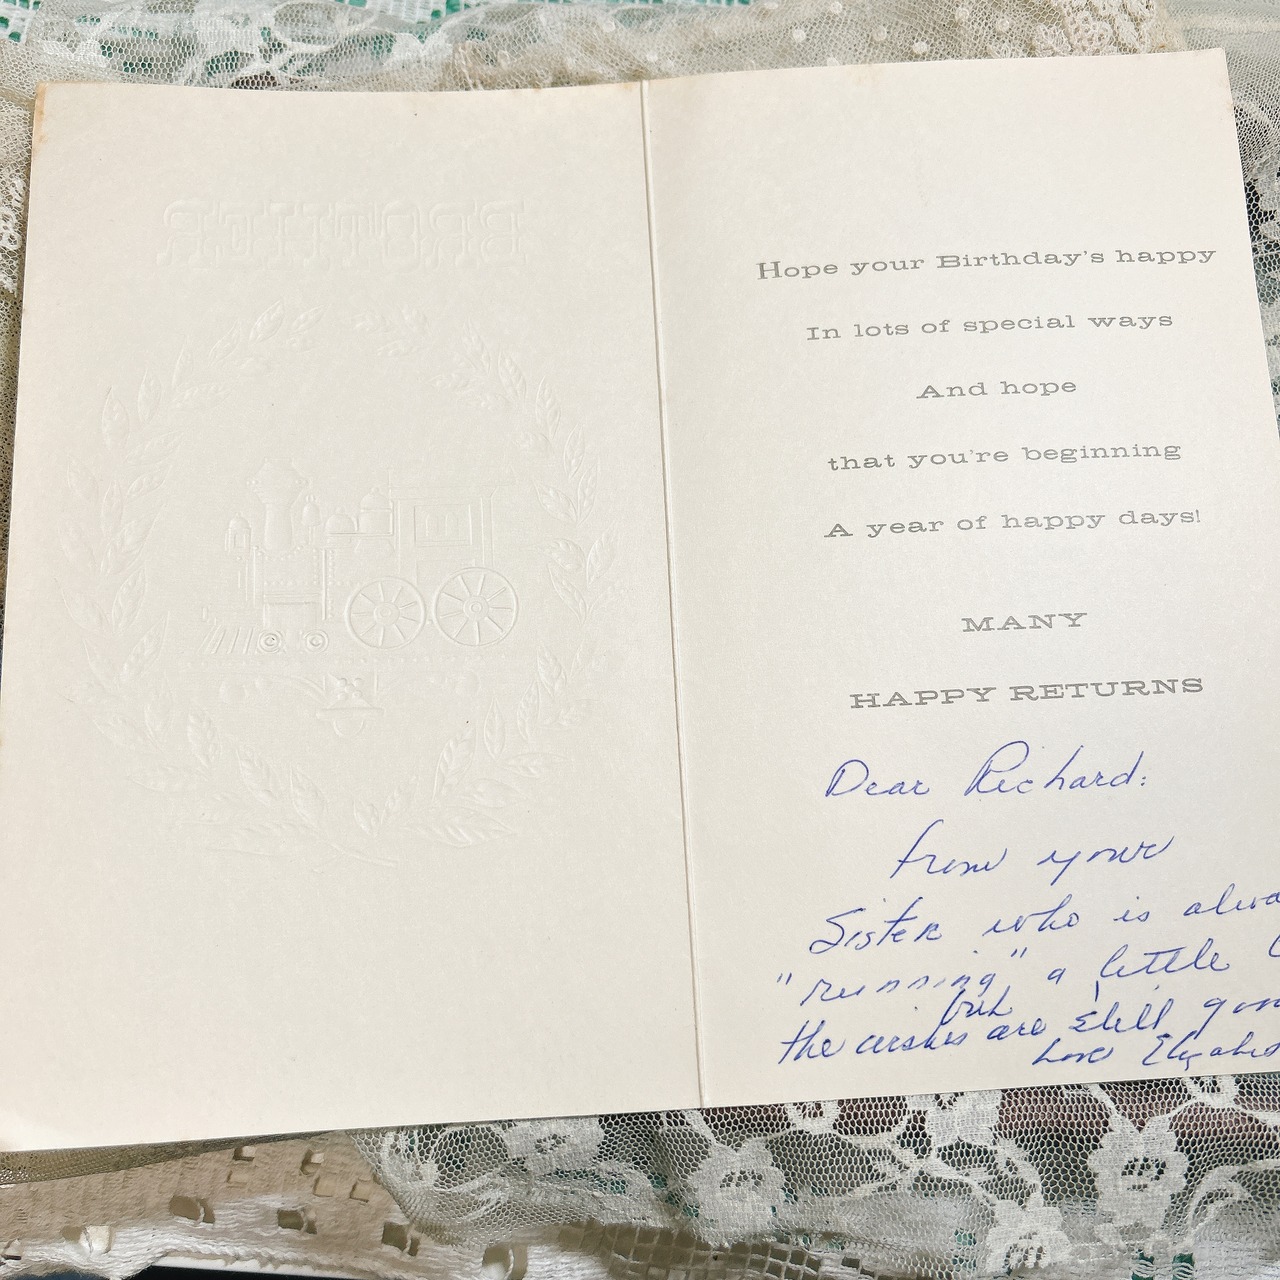 BROTHER
Hope your Birthday's happy
In lots of special ways
And hope
that you're beginning
A year of happy days!
MANY
HAPPY RETURNS
Dear Richard:
from your
Sister who is
"running" a little
but
the wishes are still
Love